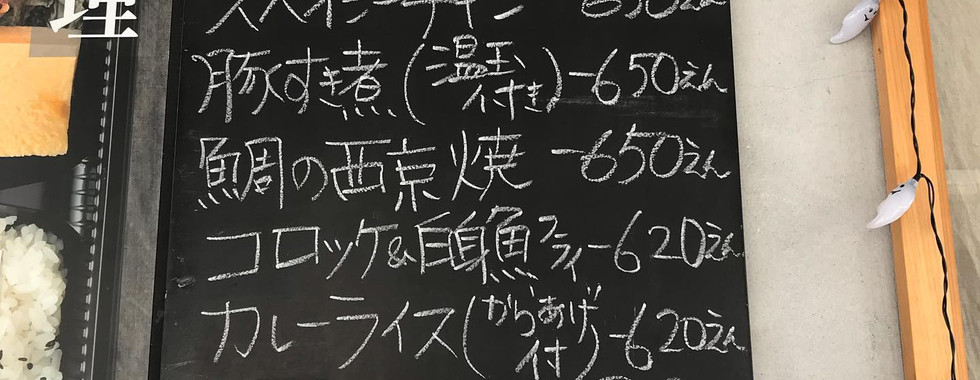 スパイシーチキン
豚すき煮(温玉付き)-650えん
鯛の西京焼-650えん
コロッケ&白身魚フライ-620えん
カレーライス(からあげ付)-620えん